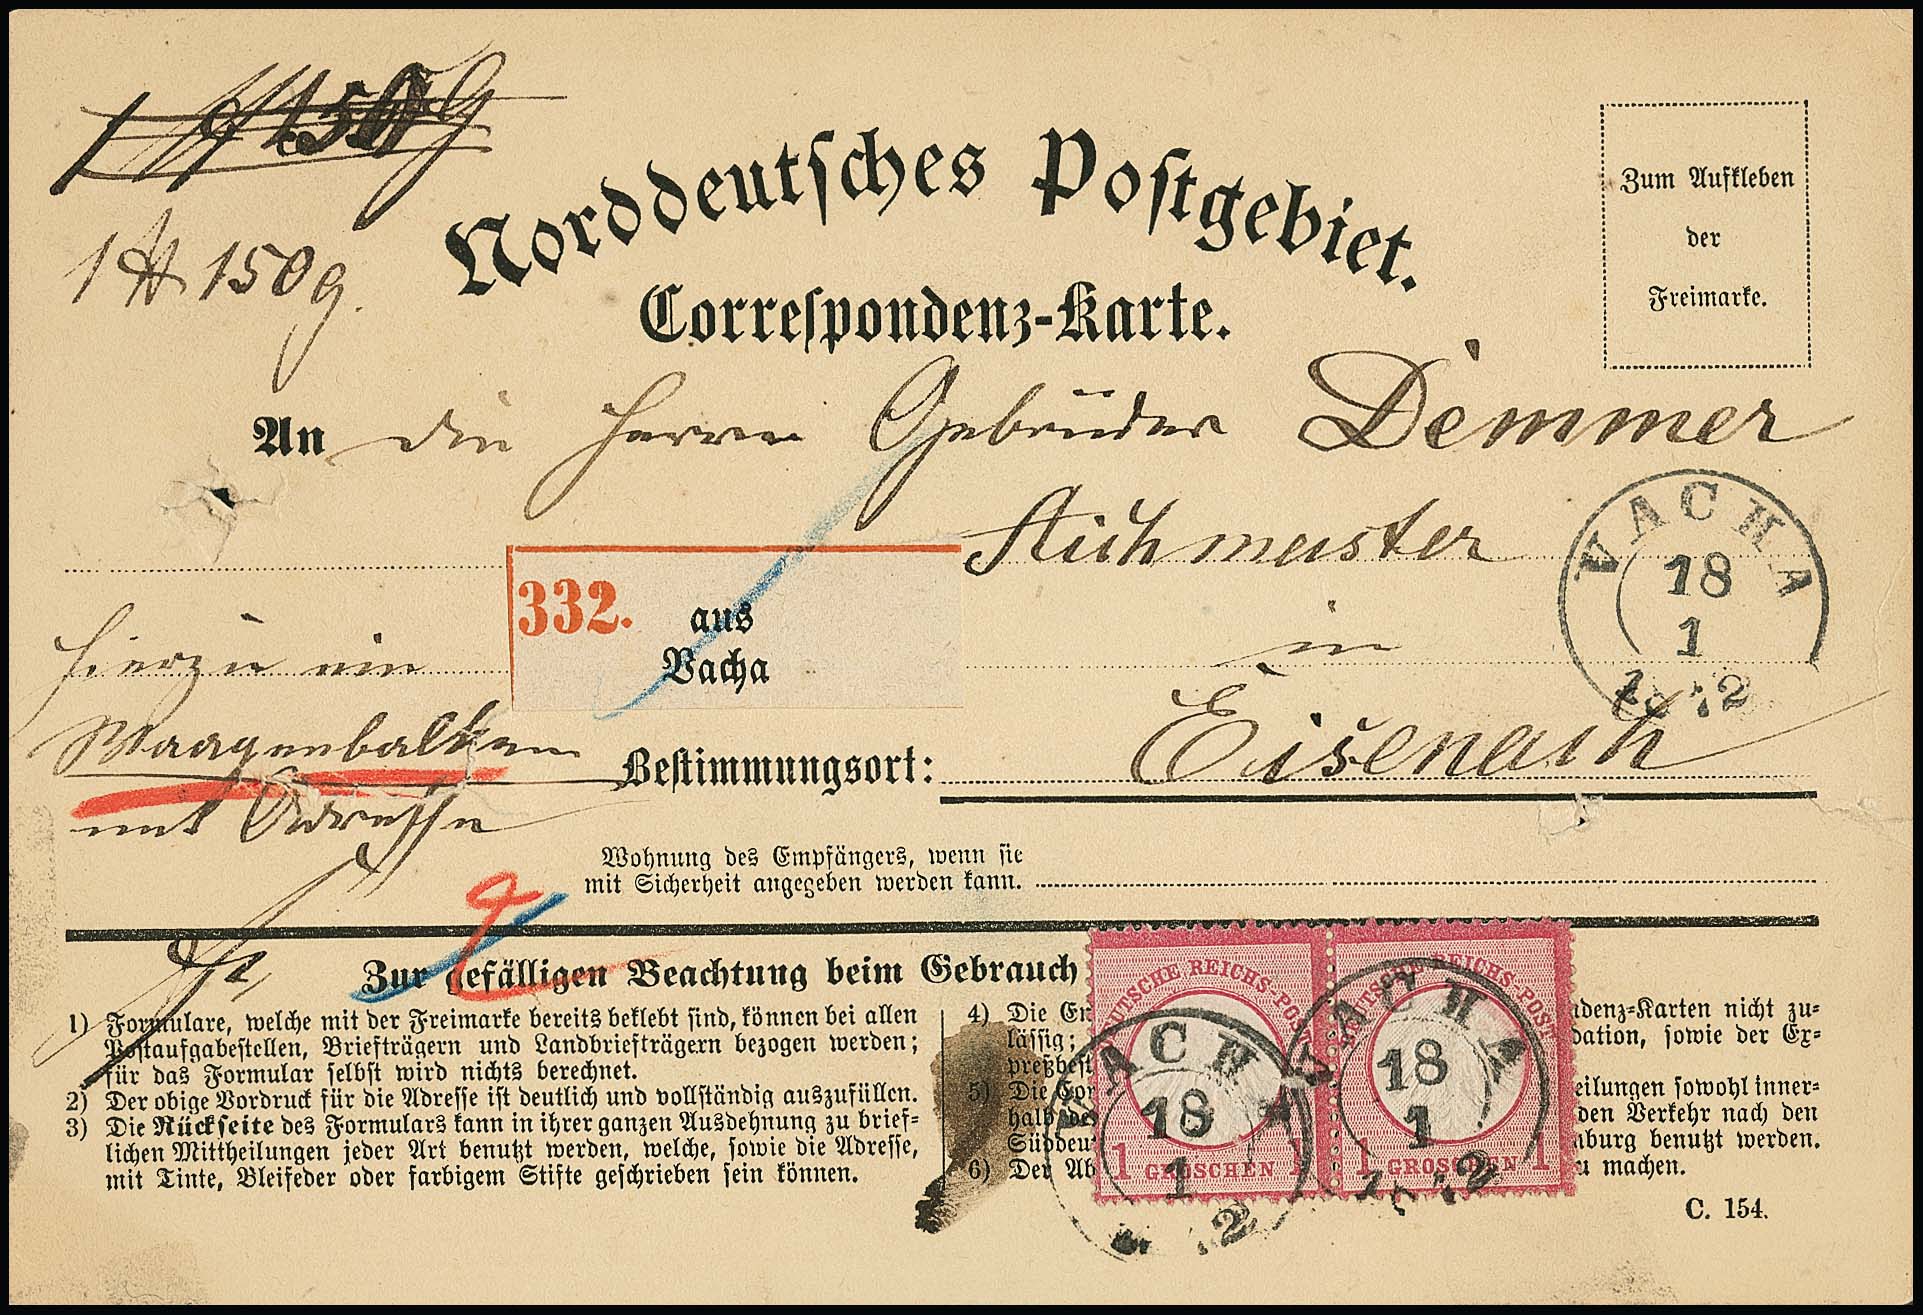 1 ℔ 150 g.
Norddeutsches Postgebiet.
Correspondenz-Karte.
Zum Aufkleben
der
Freimarke.
An die Herren Gebrüder Demmer
Aichmeister
in
Bestimmungsort: Eisenach
332. aus
Vacha
hierzu ein
Waagenbalken
mit Adresse
VACHA
18
1
Wohnung des Empfängers, wenn sie
mit Sicherheit angegeben werden kann.
Zur gefälligen Beachtung beim Gebrauch
1) Formulare, welche mit der Freimarke bereits beklebt sind, können bei allen
Postaufgabestellen, Briefträgern und Landbriefträgern bezogen werden;
für das Formular selbst wird nichts berechnet.
2) Der obige Vordruck für die Adresse ist deutlich und vollständig auszufüllen.
3) Die Rückseite des Formulars kann in ihrer ganzen Ausdehnung zu brief-
lichen Mittheilungen jeder Art benutzt werden, welche, sowie die Adresse,
mit Tinte, Bleifeder oder farbigem Stifte geschrieben sein können.
4) Die En denz-Karten nicht zu-
lässig; dation, sowie der Ex-
preßbest
5) Die Cor eilungen sowohl inner-
halb des den Verkehr nach den
Süddeu nburg benutzt werden.
6) Der Ab zu machen.
C. 154.
DEUTSCHE REICHS-POST
1 GROSCHEN 1
VACHA
18
1
DEUTSCHE REICHS-POST
1 GROSCHEN 1
VACHA
18
1